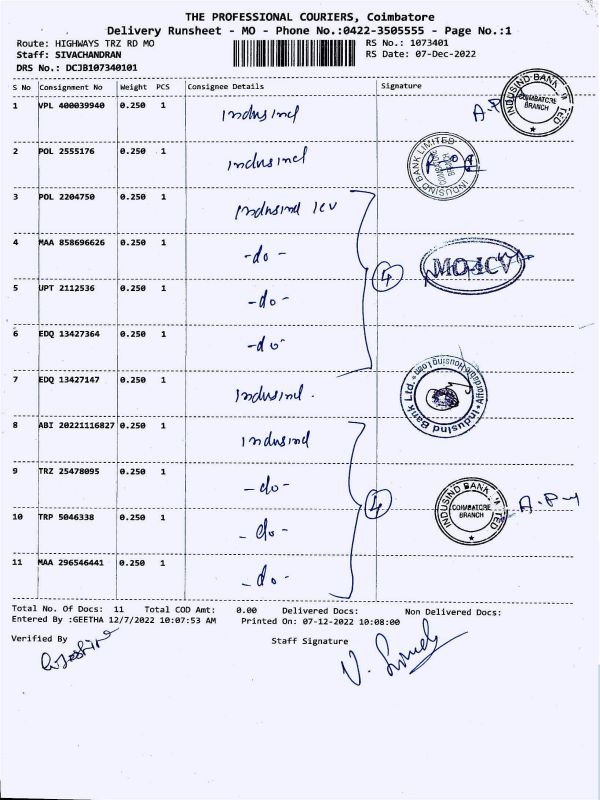 THE PROFESSIONAL COURIERS, Coimbatore
Delivery Runsheet - MO - Phone No.:0422-3505555 - Page No.:1
Route: HIGHWAYS TRZ RD MO RS No.: 1073401
Staff: SIVACHANDRAN RS Date: 07-Dec-2022
DRS No.: DCJB107340101
S No Consignment No Weight PCS Consignee Details Signature
1 VPL 400039940 0.250 1 Indusind A.P
INDUSIND BANK COIMBATORE BRANCH
2 POL 2555176 0.250 1 Indusind
INDUSIND BANK LIMITED
3 POL 2204750 0.250 1 Indusind ICV
4 MAA 858696626 0.250 1 -do- 4 MO-ICV
5 UPT 2112536 0.250 1 -do-
6 EDQ 13427364 0.250 1 -do-
7 EDQ 13427147 0.250 1 Indusind.
Affordable Housing Loan * Indusind Bank Ltd. *
8 ABI 20221116827 0.250 1 Indusind
9 TRZ 25478095 0.250 1 -do- 4
INDUSIND BANK COIMBATORE BRANCH A.P
10 TRP 5046338 0.250 1 -do-
11 MAA 296546441 0.250 1 -do-
Total No. Of Docs: 11 Total COD Amt: 0.00 Delivered Docs: Non Delivered Docs:
Entered By :GEETHA 12/7/2022 10:07:53 AM Printed On: 07-12-2022 10:08:00
Verified By Staff Signature